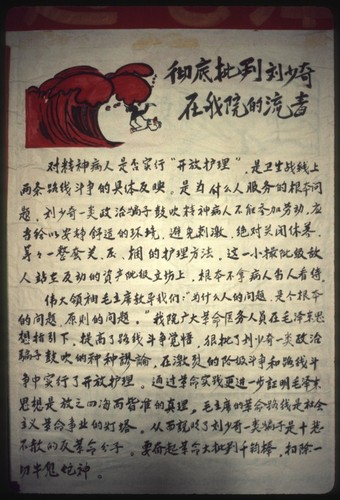 彻底批判刘少奇
在我院的流毒
对精神病人是否实行"开放护理"，是卫生战线上
两条路线斗争的具体反映。是为什么人服务的根本问
题，刘少奇一类政治骗子鼓吹精神病人不能参加劳动，应
当给以安静舒适的环境，避免刺激，绝对关闭休养。
一整套关、捆的护理方法。这一小撮阶级敌
人站在反动的资产阶级立场上，根本不拿病人当人看待。
伟大领袖毛主席教导我们："为什么人的问题，是个根本
的问题，原则的问题。"我院广大革命医务人员在毛泽东思
想指引下，提高了路线斗争觉悟，狠批了刘少奇一类政治
骗子鼓吹的种种谬论，在激烈的阶级斗争和路线斗
争中实行了开放护理。通过革命实践更进一步証明毛泽东
思想是放之四海而皆准的真理。毛主席的革命路线是社会
主义革命事业的灯塔。从而説明了刘少奇一类骗子是十恶
不赦的反革命分子。要奋起革命大批判千钧棒，扫除一
切牛鬼蛇神。